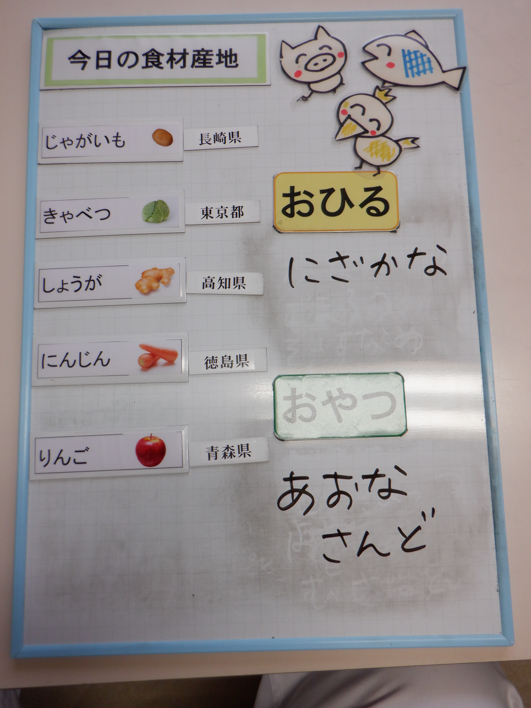 今日の食材産地
じゃがいも 長崎県
きゃべつ 東京都
しょうが 高知県
にんじん 徳島県
りんご 青森県
おひる
にざかな
おやつ
あおな
さんど